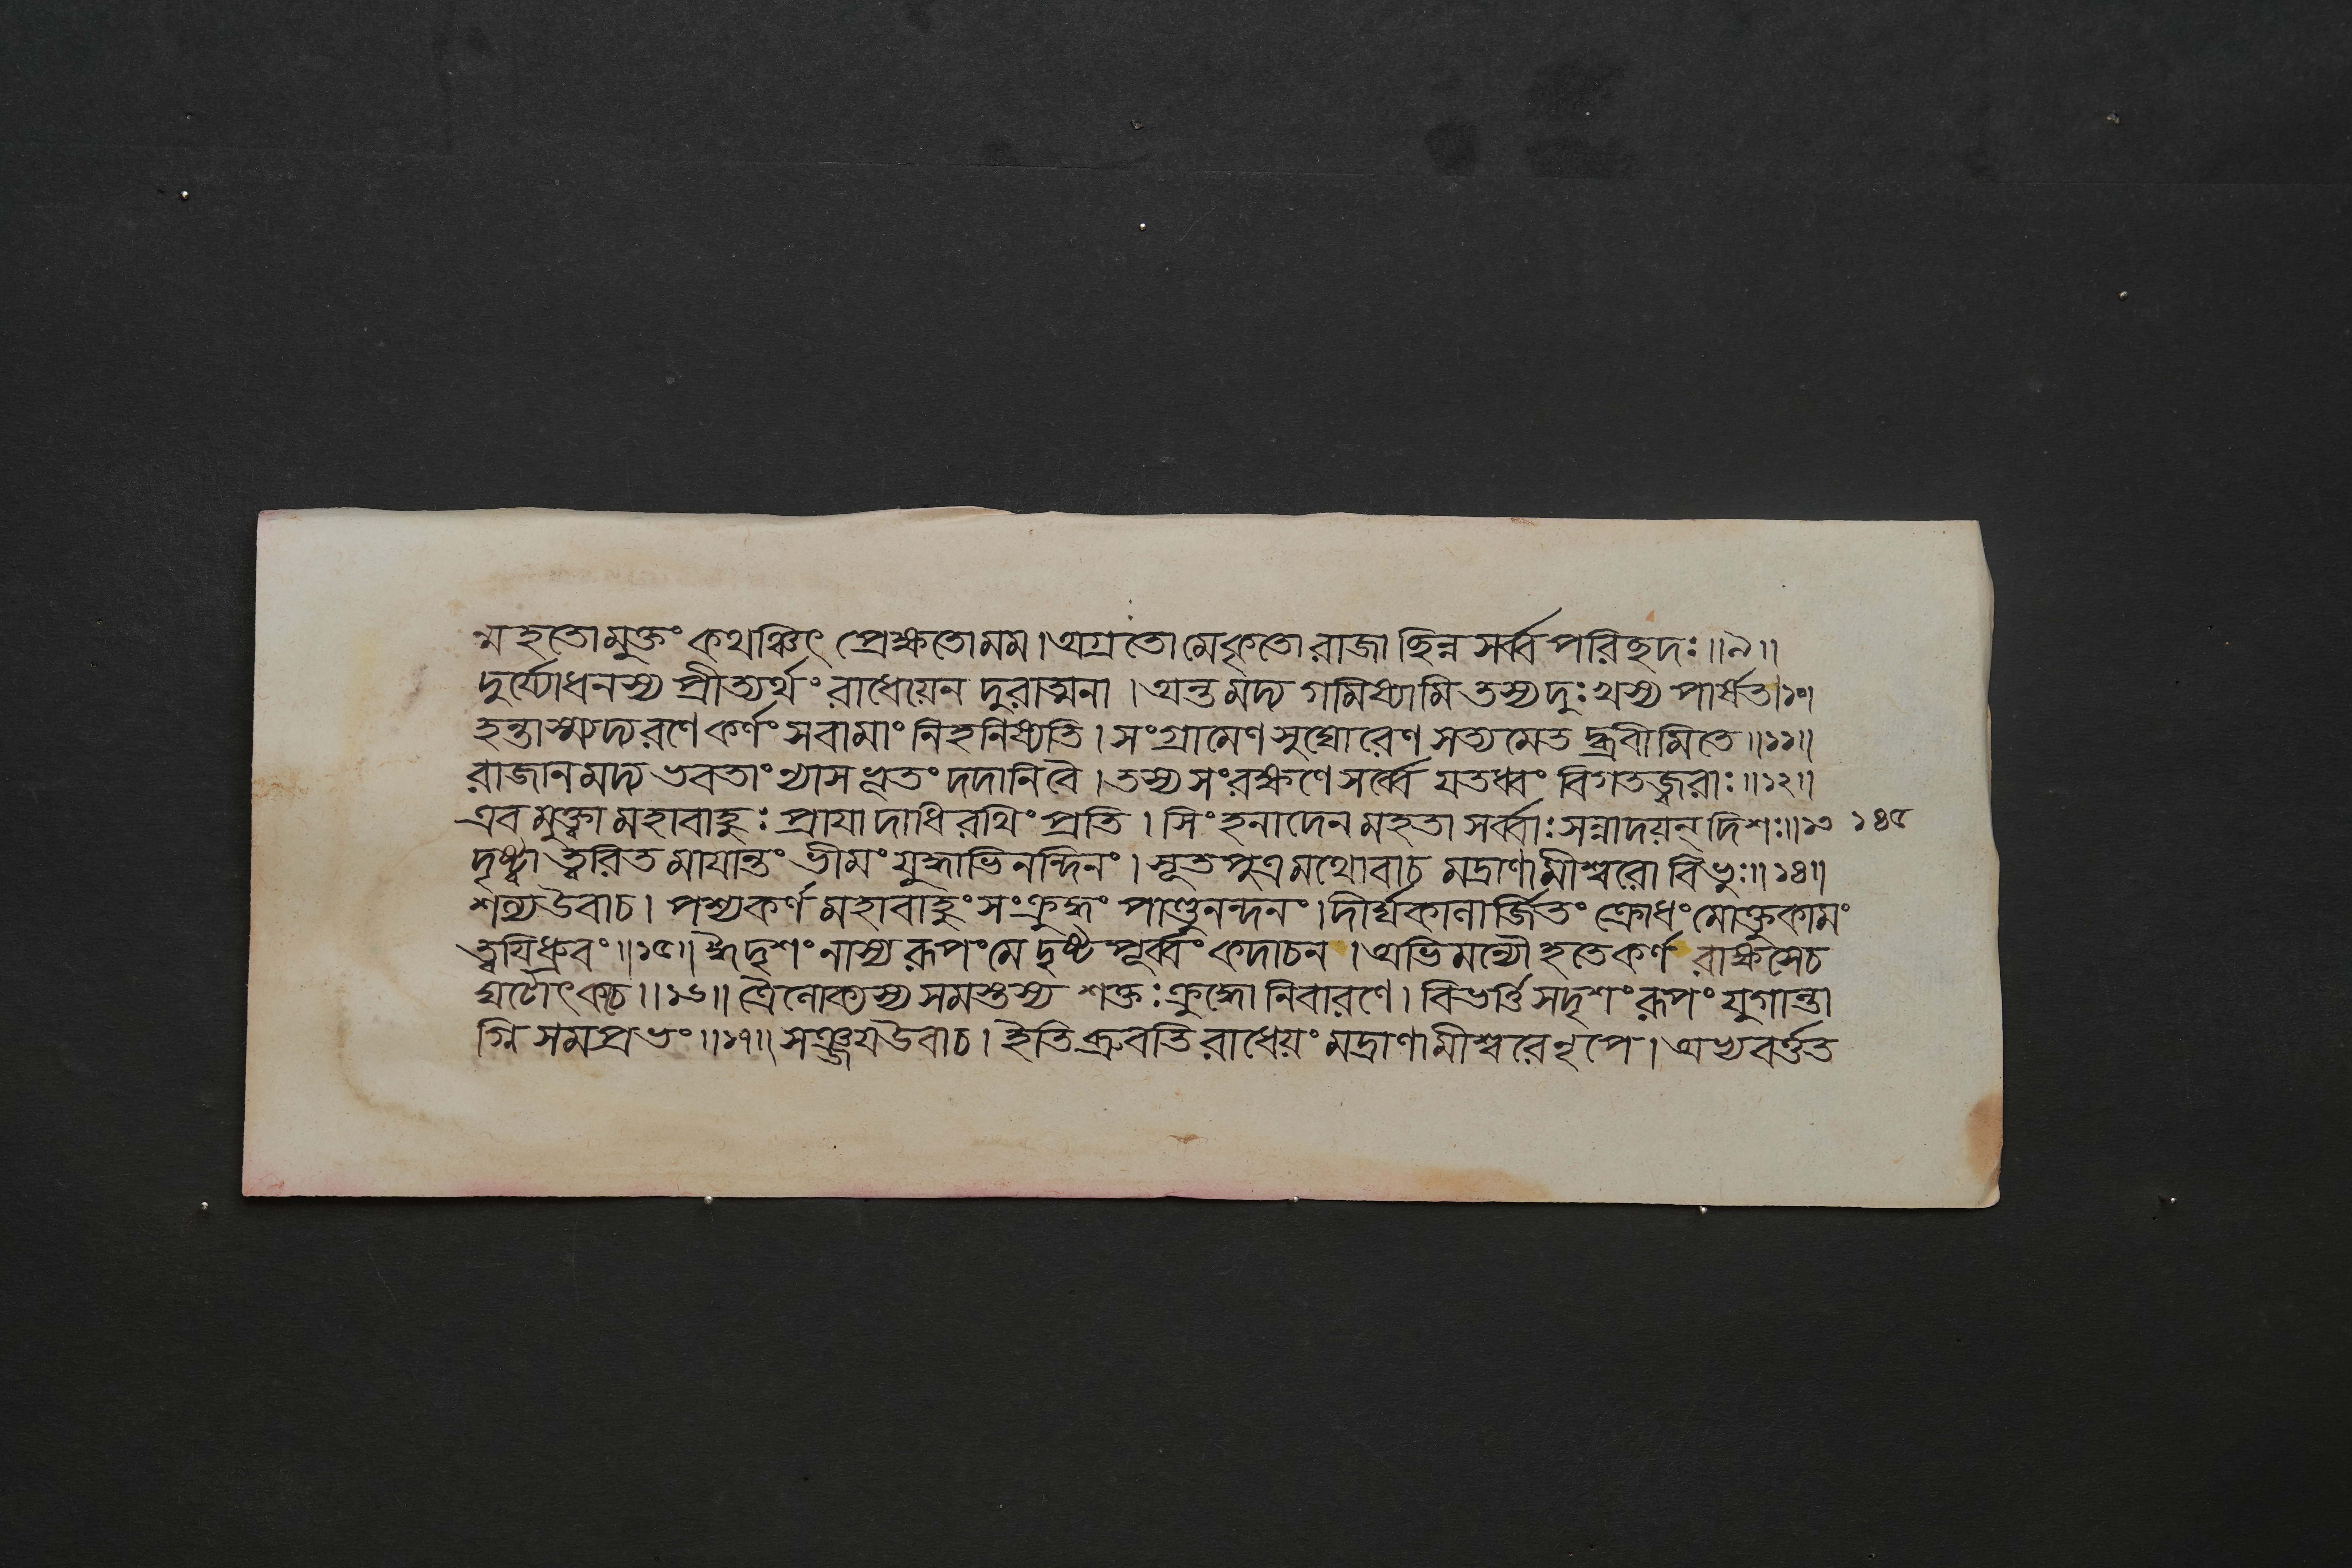 ন্মহতোমুক্তং কথঞ্চিৎ প্রেক্ষতোমম।অগ্রতোমেকৃতোরাজাছিন্নসর্ব্বপরিছদঃ॥৯॥
দুর্য্যোধনস্য প্রীত্যর্থং রাধেয়েন দুরাত্মনা।অন্তমদ্য গমিষ্যামি তস্যদুঃখস্য পার্ষত॥১০॥
হন্তাস্ম্যদ্যরণেকর্ণং সবামাং নিহনিষ্যতি।সংগ্রামেণসুঘোরেণ সত্যমেতদ্ব্রবীমিতে॥১১॥
রাজানমদ্য ভবতাং ন্যাসভূতং দদানিবৈ।তস্যসংরক্ষণেসর্ব্বে যতধ্বং বিগতজ্বরাঃ॥১২॥
এবমুক্ত্বা মহাবাহুঃ প্রায়াদাধিরথিং প্রতি। সিংহনাদেনমহতা সর্ব্বাঃসন্নাদয়ন্দিশঃ॥১৩ ১৪৫
দৃষ্ট্বা ত্বরিতমায়ান্তং ভীমং যুদ্ধাভিনন্দিনং। সূতপুত্রমথোবাচ মদ্রাণামীশ্বরোবিভুঃ॥১৪॥
শল্যউবাচ। পশ্যকর্ণ মহাবাহুং সংক্রুদ্ধং পাণ্ডুনন্দনং।দীর্ঘকালার্জিতং ক্রোধংমোক্তুকামং
ত্বয়িধ্রুবং॥১৫॥ঈদৃশং নাস্যরূপংমে দৃষ্টপূর্ব্বং কদাচন।অভিমন্যৌহতেকর্ণ রাক্ষসেচ
ঘটোৎকচে॥১৬॥ ত্রৈলোক্যস্যসমস্তস্য শক্তঃক্রুদ্ধোনিবারণে। বিভর্ত্তিসদৃশংরূপং যুগান্তা
গ্নিসমপ্রভং॥১৭॥সঞ্জয়উবাচ।ইতিব্রুবতিরাধেয়ং মদ্রাণামীশ্বরেনৃপে।অভ্যবর্ত্তত